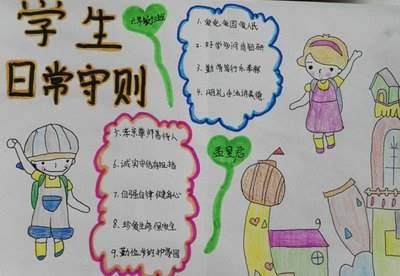 学生
日常守则
1. 爱党爱国爱人民
2. 好学多问肯钻研
3. 勤劳笃行乐奉献
4. 明礼守法讲美德
5. 孝亲尊师善待人
6. 诚实守信有担当
7. 自强自律健身心
8. 珍爱生命保安全
9. 勤俭节约护家园